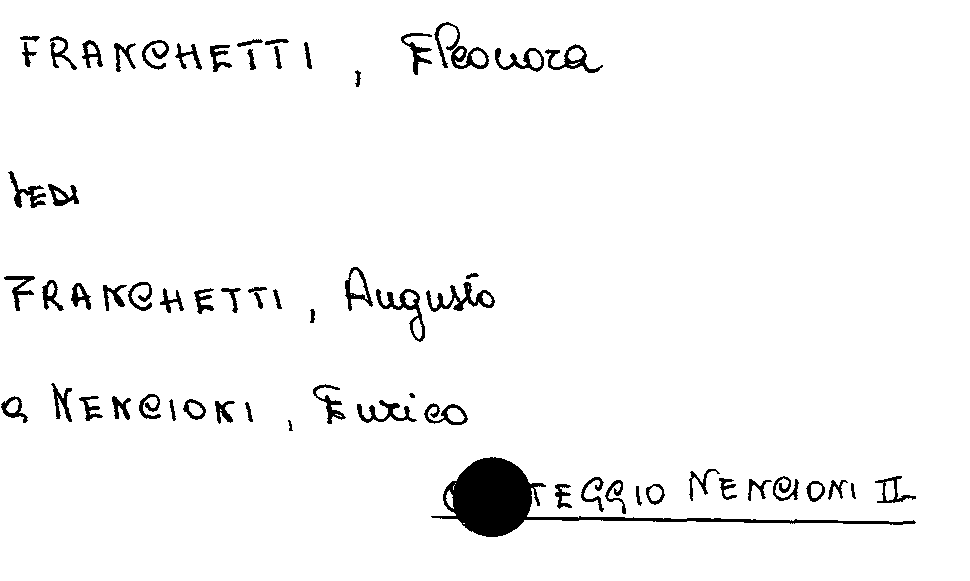 FRANCHETTI, Eleonora
VEDI
FRANCHETTI, Augusto
a NENCIONI, Enrico
NENCIONI II